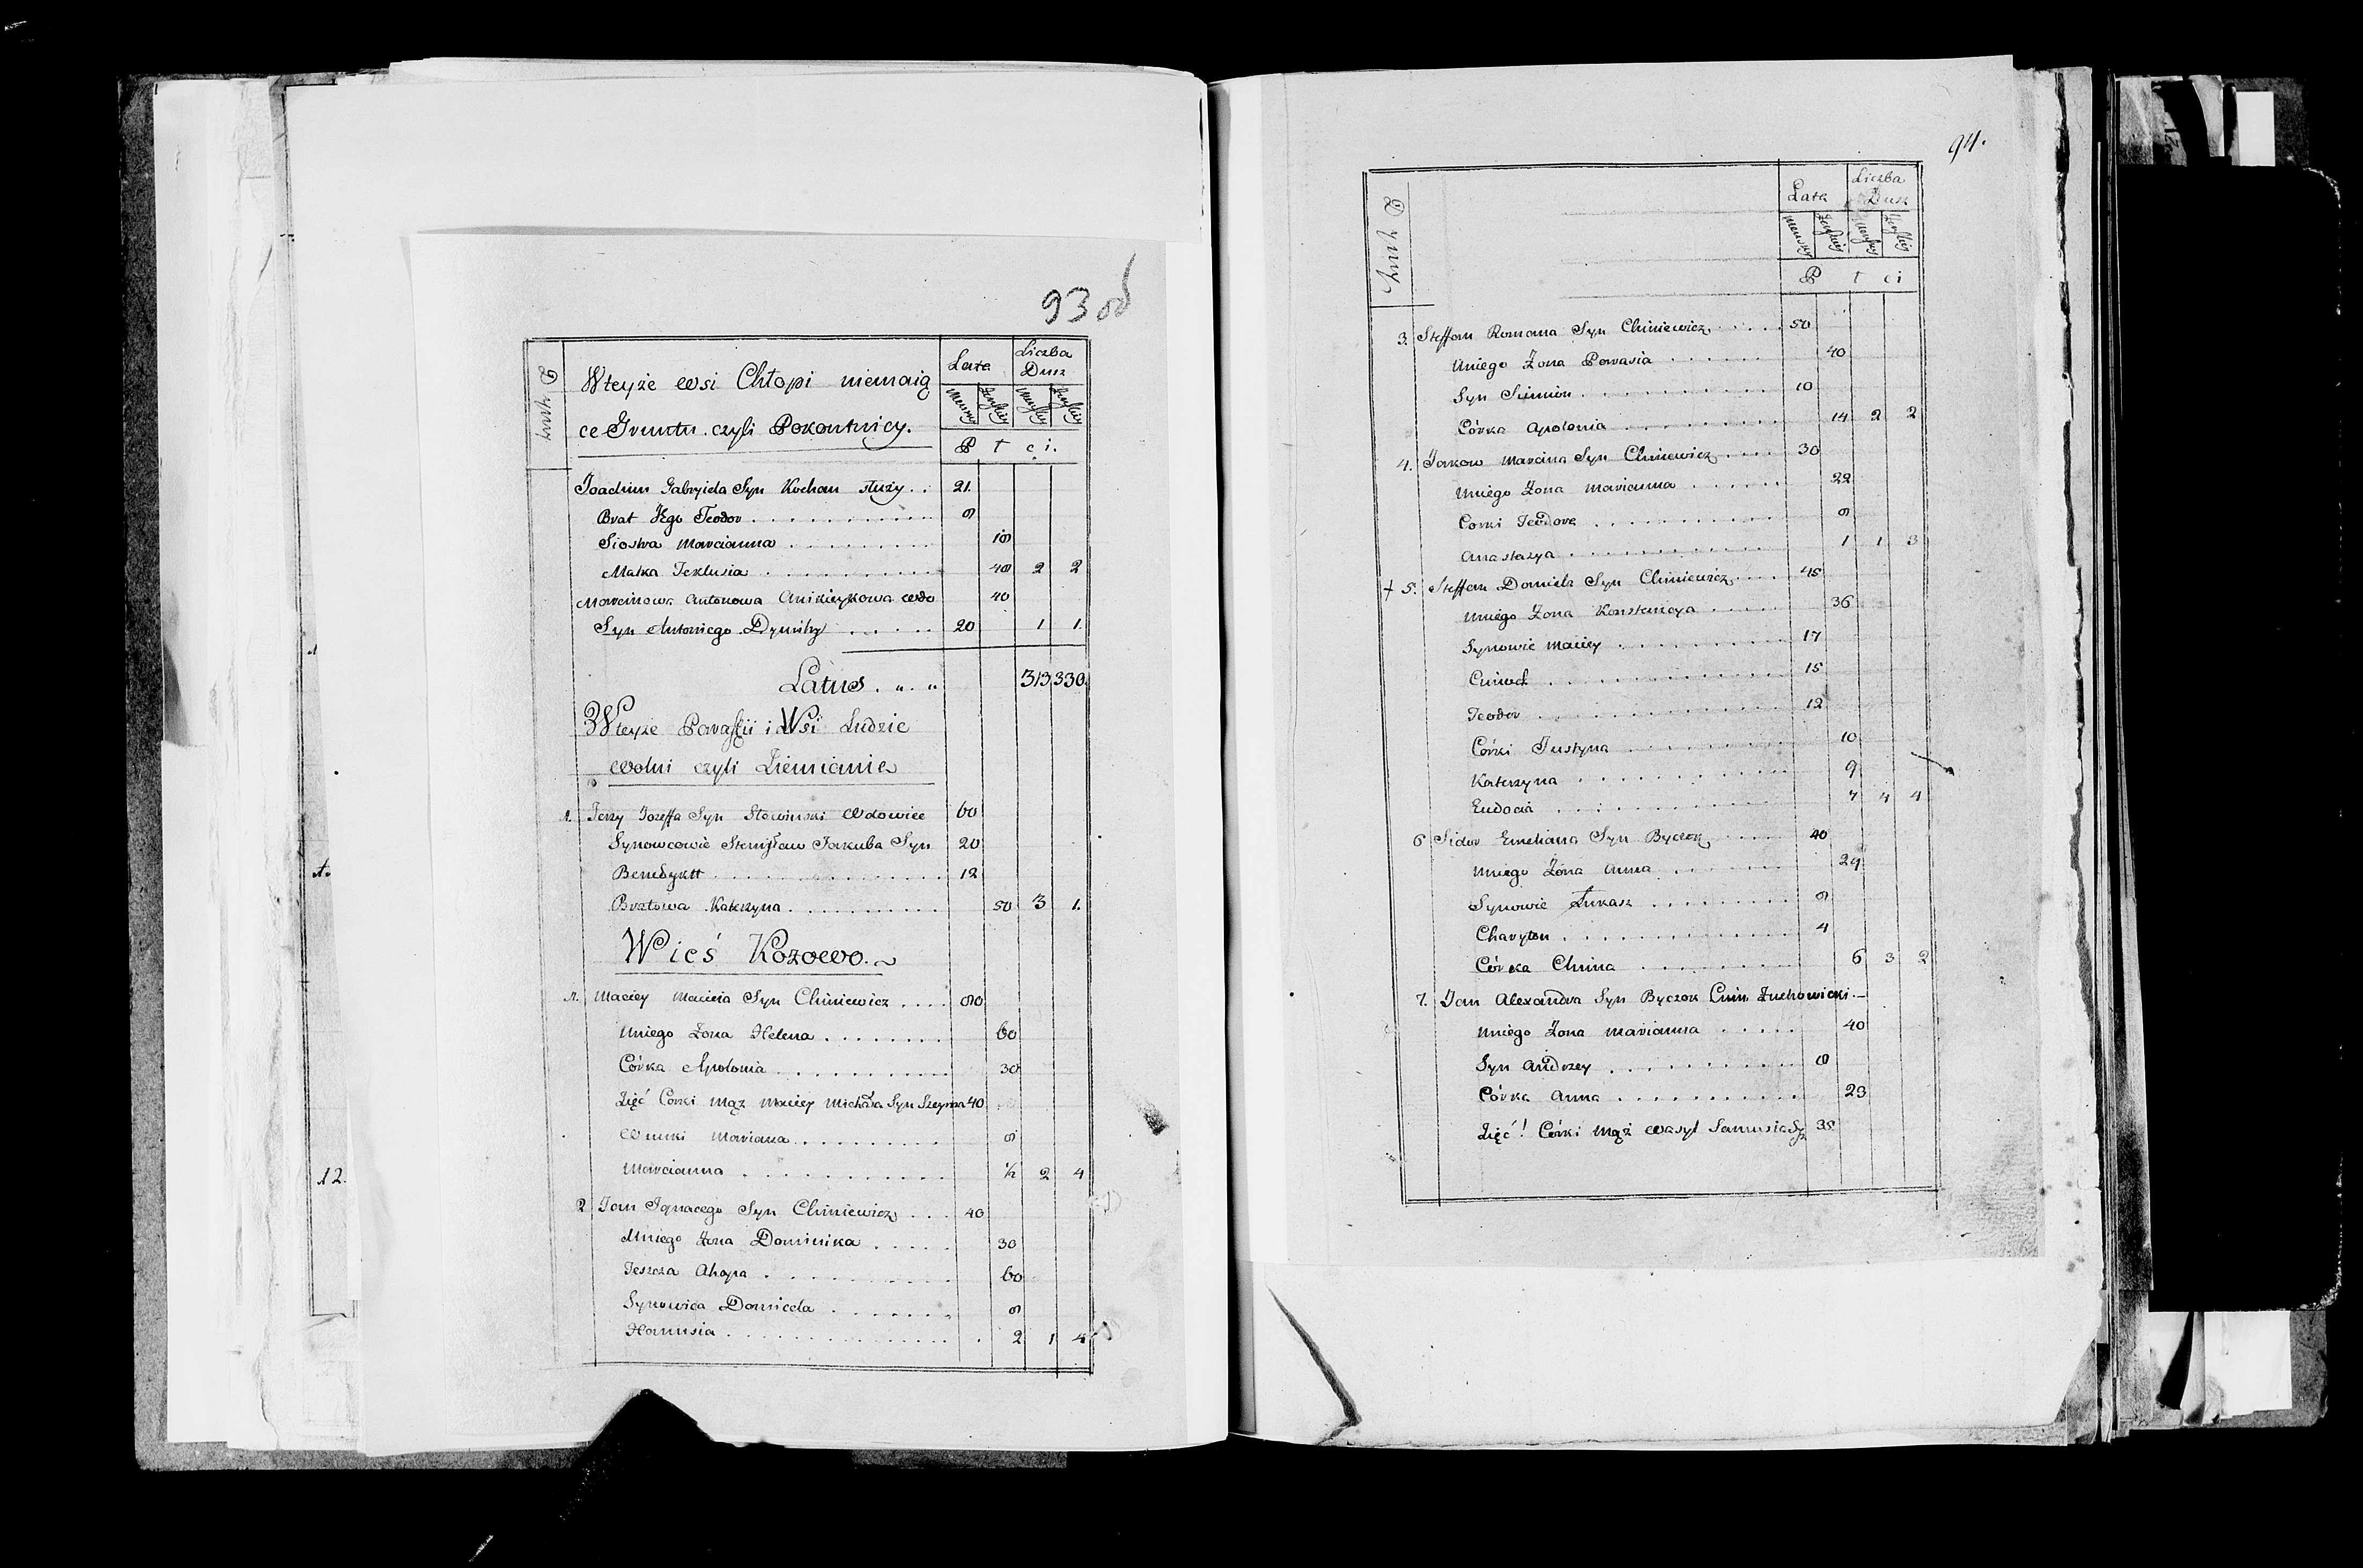 93 od
Wteyże wsi Chłopi niemaią
ce Gruntu czyli Pokontnicy.
Lata
Liczba
Dusz
P t c i.
Joachim Gabryiela Syn Kochan służy . . 21.
Brat Jego Teodor . . . 8
Siostra Marcianna . . . 18
Matka Teklusia . . . 48 2 2
Marcinowa Antonowa Anikieykowa wdo 40
Syn Antoniego Dymitry . . . 20 1 1.
Latus . „ . „ 313 330.
Wteyże Parafii i Wsi Ludzie
wolni czyli Ziemianie
1. Jerzy Jozeffa Syn Stawinski Wdowiec 60
Synowcowie Stanisław Jakuba Syn 20
Benedykt . . . 12
Bratowa Katerzyna . . . 50 3 1.
Wieś Kozowo.
1. Maciey Macieia Syn Chiniewicz . . . 80
Uniego Zona Helena . . . 60
Córka Apolonia . . . 30
Zięć Corki Mąz Maciey Michała Syn 40
Wnuki Mariana . . . 8
Marcianna . . . ½ 2 4
2 Jan Ignacego Syn Chiniewicz . . . 40
Uniego Zona Dominika . . . 30
Teszcza Ahapa . . . 60
Synowica Domicela . . . 8
Hanusia . . . 2 1 4
94.
Lata
Liczba
Dusz
P t c i
3. Steffan Romana Syn Chiniewicz . . . 50
Uniego Zona Parasia . . . 40
Syn Simion . . . 10
Córka Apolonia . . . 14 2 2
4. Jakow Marcina Syn Chiniewicz . . . 30
Uniego Zona Marianna . . . 22
Corki Teodora . . . 8
Anastazya . . . 1 1 3
+ 5. Steffan Daniela Syn Chiniewicz . . . 45
Uniego Zona Konstancya . . . 36
Synowie Maciey . . . 17
. . . 15
Teodor . . . 12
Córki Justyna . . . 10
Katerzyna . . . 9
Eudocia . . . 7 4 4
6 Sidor Emeliana Syn Byczok . . . 40
Uniego Zona Anna . . . 24
Synowie Łukasz . . . 8
Chariton . . . 4
Córka Chima . . . 6 3 2
7. Jan Alexandra Syn Byczok Zuchowicki. —
Uniego Zona Marianna . . . 40
Syn Andrzey . . . 8
Córka Anna . . . 23
Zięć! Córki Mąż Wasyl Samusia Syn 35
A.
12.